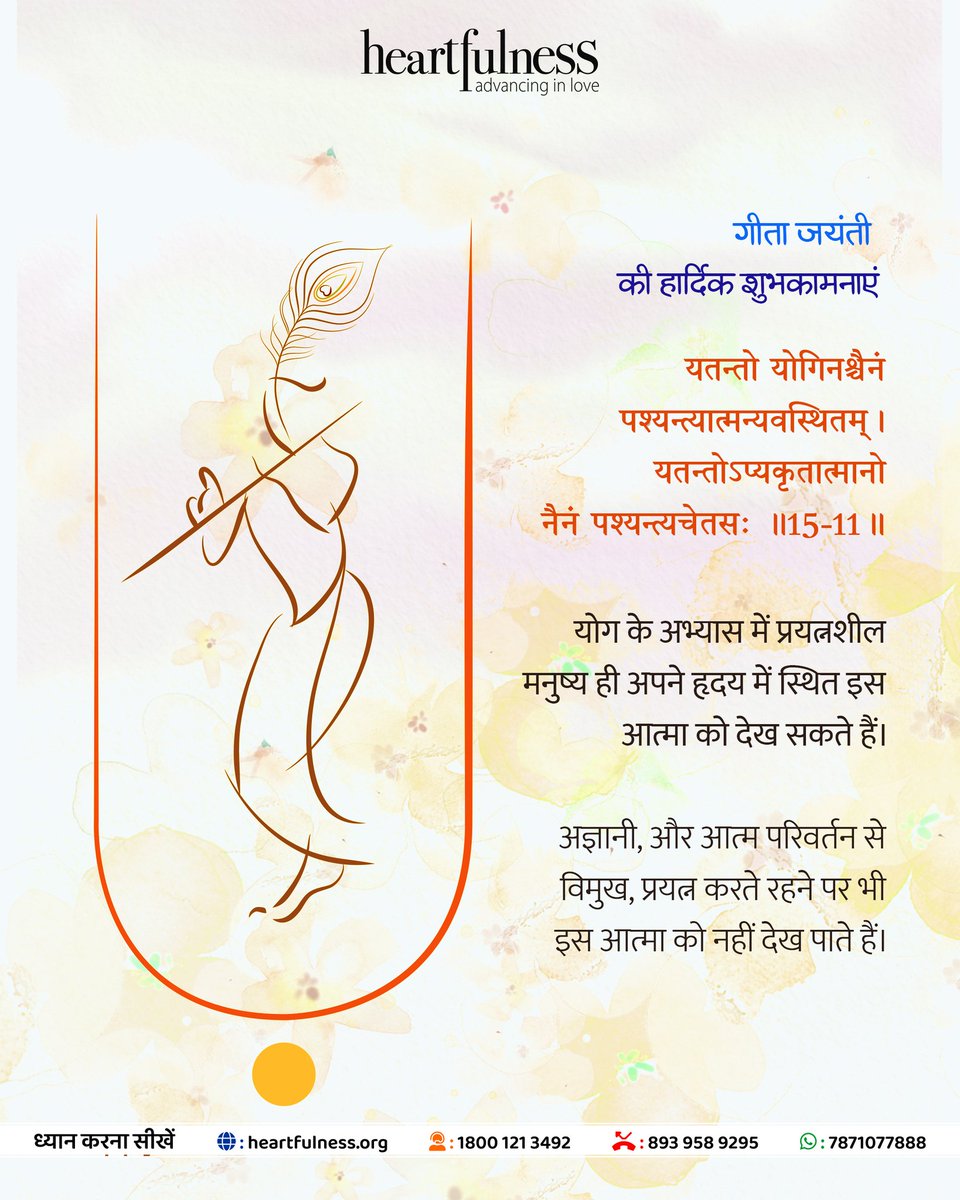 heartfulness
advancing in love
गीता जयंती
की हार्दिक शुभकामनाएं
यतन्तो योगिनश्चैनं
पश्यन्त्यात्मन्यवस्थितम् ।
यतन्तोऽप्यकृतात्मानो
नैनं पश्यन्त्यचेतसः ॥15-11॥
योग के अभ्यास में प्रयत्नशील
मनुष्य ही अपने हृदय में स्थित इस
आत्मा को देख सकते हैं।
अज्ञानी, और आत्म परिवर्तन से
विमुख, प्रयत्न करते रहने पर भी
इस आत्मा को नहीं देख पाते हैं।
ध्यान करना सीखें : heartfulness.org : 1800 121 3492 : 893 958 9295 : 7871077888